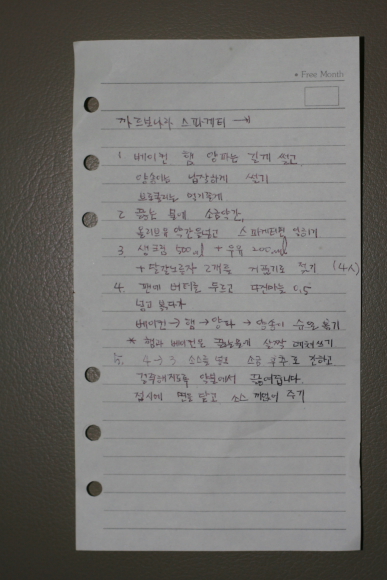 • Free Month
까르보나라 스파게티
1. 베이컨 햄 양파는 길게 썰고
양송이는 납작하게 썰기
브로콜리는 먹기좋게
2. 끓는 물에 소금약간,
올리브유 약간을넣고 스파게티면 익히기
3. 생크림 500ml + 우유 200ml
+ 달걀노른자 2개를 거품기로 젓기 (4人)
4. 팬에 버터를 두르고 다진마늘 0.5
넣고 볶다가
베이컨 → 햄 → 양파 → 양송이 순으로 볶기
* 햄과 베이컨은 끓는물에 살짝 데쳐쓰기
5. 4 → 3 소스를 넣고 소금 후추로 간하고
걸쭉해지도록 약불에서 끓여줍니다.
접시에 면을 담고, 소스 끼얹어 주기